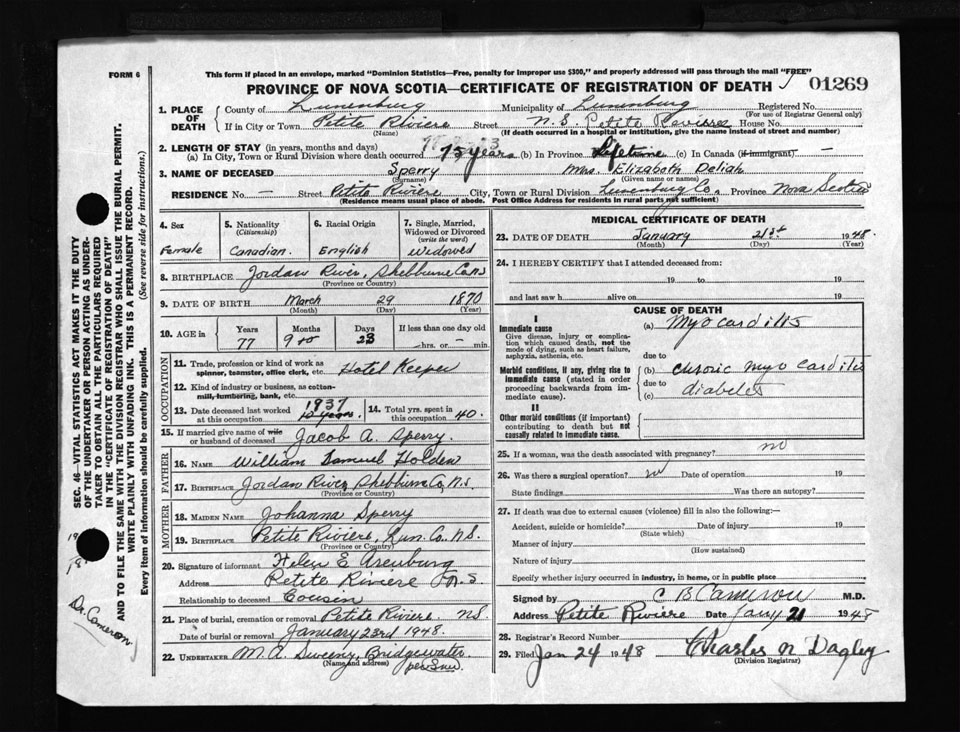 FORM 6
This form if placed in an envelope, marked "Dominion Statistics—Free, penalty for improper use $300," and properly addressed will pass through the mail "FREE"
PROVINCE OF NOVA SCOTIA—CERTIFICATE OF REGISTRATION OF DEATH
01269
1. PLACE OF DEATH
County of Lunenburg Municipality of Lunenburg Registered No.
(For use of Registrar General only)
If in City or Town Petite Riviere Street N.S. Petite Riviere House No.
(Name) (If death occurred in a hospital or institution, give the name instead of street and number)
2. LENGTH OF STAY (in years, months and days)
(a) In City, Town or Rural Division where death occurred 75 years (b) In Province Lifetime (c) In Canada (if immigrant) —
3. NAME OF DECEASED Sperry Mrs. Elizabeth Deliah
(Surname) (Given name or names)
RESIDENCE No. — Street Petite Riviere City, Town or Rural Division Lunenburg Co. Province Nova Scotia
(Residence means usual place of abode. Post Office Address for residents in rural parts not sufficient)
4. Sex
Female
5. Nationality
(Citizenship)
Canadian.
6. Racial Origin
English
7. Single, Married,
Widowed or Divorced
(write the word)
Widowed
8. BIRTHPLACE Jordan River, Shelburne Co. NS
(Province or Country)
9. DATE OF BIRTH March 29 1870
(Month) (Day) (Year)
10. AGE in
Years Months Days If less than one day old
77 9 23 —hrs. or — min.
OCCUPATION
11. Trade, profession or kind of work as
spinner, teamster, office clerk, etc. Hotel Keeper
12. Kind of industry or business, as cotton-
mill, lumbering, bank, etc.
13. Date deceased last worked
at this occupation 1937 10 years
14. Total yrs. spent in
this occupation 40.
15. If married give name of wife
or husband of deceased Jacob A. Sperry.
FATHER
16. NAME William Samuel Holden
17. BIRTHPLACE Jordan River Shelburne Co, N.S.
(Province or Country)
MOTHER
18. MAIDEN NAME Johanna Sperry
19. BIRTHPLACE Petite Riviere, Lun. Co. N.S.
(Province or Country)
20. Signature of informant Helen E Arenburg
Address Petite Riviere N.S.
Relationship to deceased Cousin
21. Place of burial, cremation or removal Petite Riviere. NS.
Date of burial or removal January 23rd 1948.
22. UNDERTAKER M.A. Sweeny, Bridgewater
(Name and address)
MEDICAL CERTIFICATE OF DEATH
23. DATE OF DEATH January 21st 1948.
(Month) (Day) (Year)
24. I HEREBY CERTIFY that I attended deceased from:
19 to 19
and last saw h alive on 19
CAUSE OF DEATH
I
Immediate cause
Give disease, injury or complica-
tion which caused death, not the
mode of dying, such as heart failure,
asphyxia, asthenia, etc.
(a) Myocarditis
due to
Morbid conditions, if any, giving rise to
immediate cause (stated in order
proceeding backwards from im-
mediate cause).
(b) chronic myocarditis
due to
(c) diabetes
II
Other morbid conditions (if important)
contributing to death but not
causally related to immediate cause.
25. If a woman, was the death associated with pregnancy? no
26. Was there a surgical operation? no Date of operation 19
State findings Was there an autopsy?
27. If death was due to external causes (violence) fill in also the following:—
Accident, suicide or homicide? Date of injury 19
(State which)
Manner of injury
(How sustained)
Nature of injury
Specify whether injury occurred in industry, in home, or in public place
Signed by C B Cameron M.D.
Address Petite Riviere Date Jany 21 1948
28. Registrar's Record Number
29. Filed Jan 24 1948 Charles N Dagley
(Division Registrar)
SEC. 46—VITAL STATISTICS ACT MAKES IT THE DUTY
OF THE UNDERTAKER OR PERSON ACTING AS UNDER-
TAKER TO OBTAIN ALL THE PARTICULARS REQUIRED
IN THE "CERTIFICATE OF REGISTRATION OF DEATH"
AND TO FILE THE SAME WITH THE DIVISION REGISTRAR WHO SHALL ISSUE THE BURIAL PERMIT.
WRITE PLAINLY WITH UNFADING INK. THIS IS A PERMANENT RECORD.
Every item of information should be carefully supplied. (See reverse side for instructions.)
Dr. Cameron